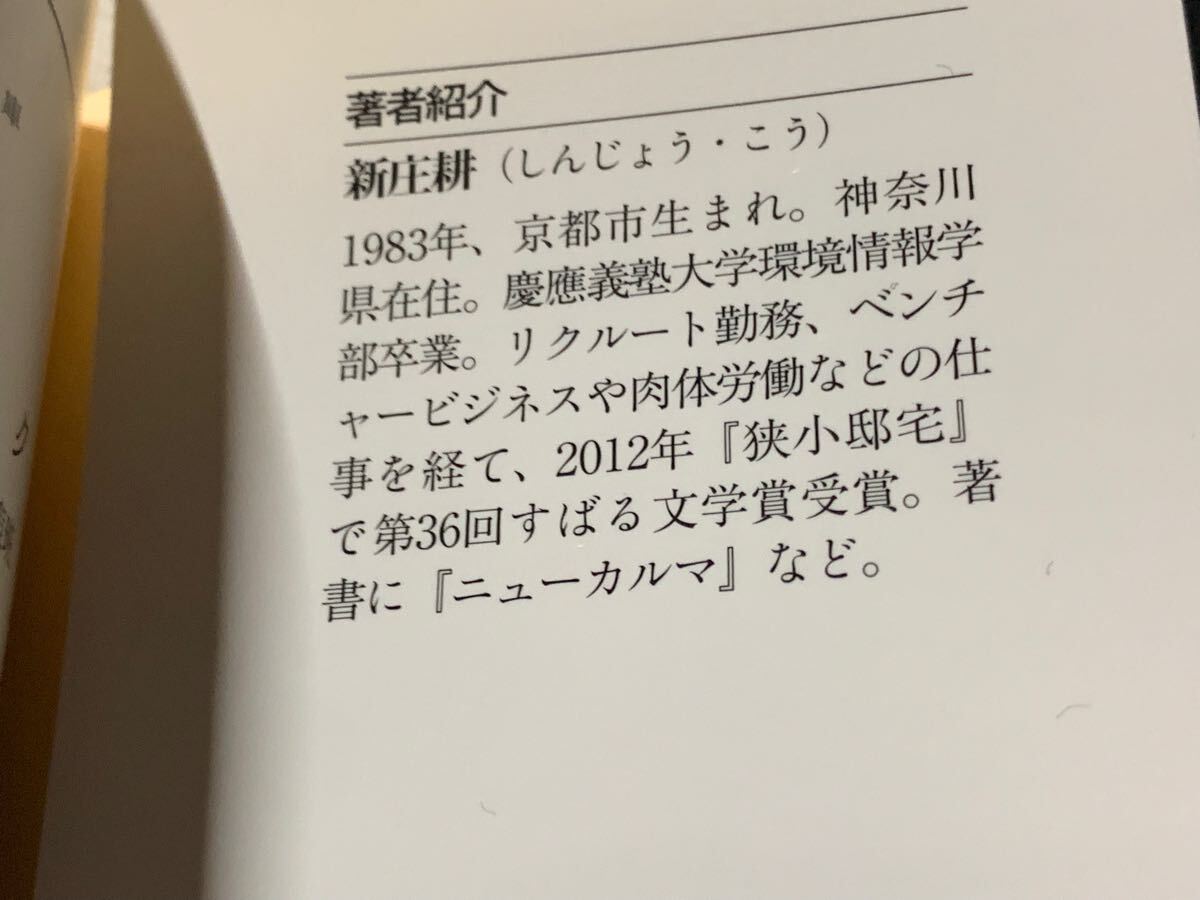 著者紹介
新庄耕（しんじょう・こう）
1983年、京都市生まれ。神奈川
県在住。慶應義塾大学環境情報学
部卒業。リクルート勤務、ベンチ
ャービジネスや肉体労働などの仕
事を経て、2012年『狭小邸宅』
で第36回すばる文学賞受賞。著
書に『ニューカルマ』など。